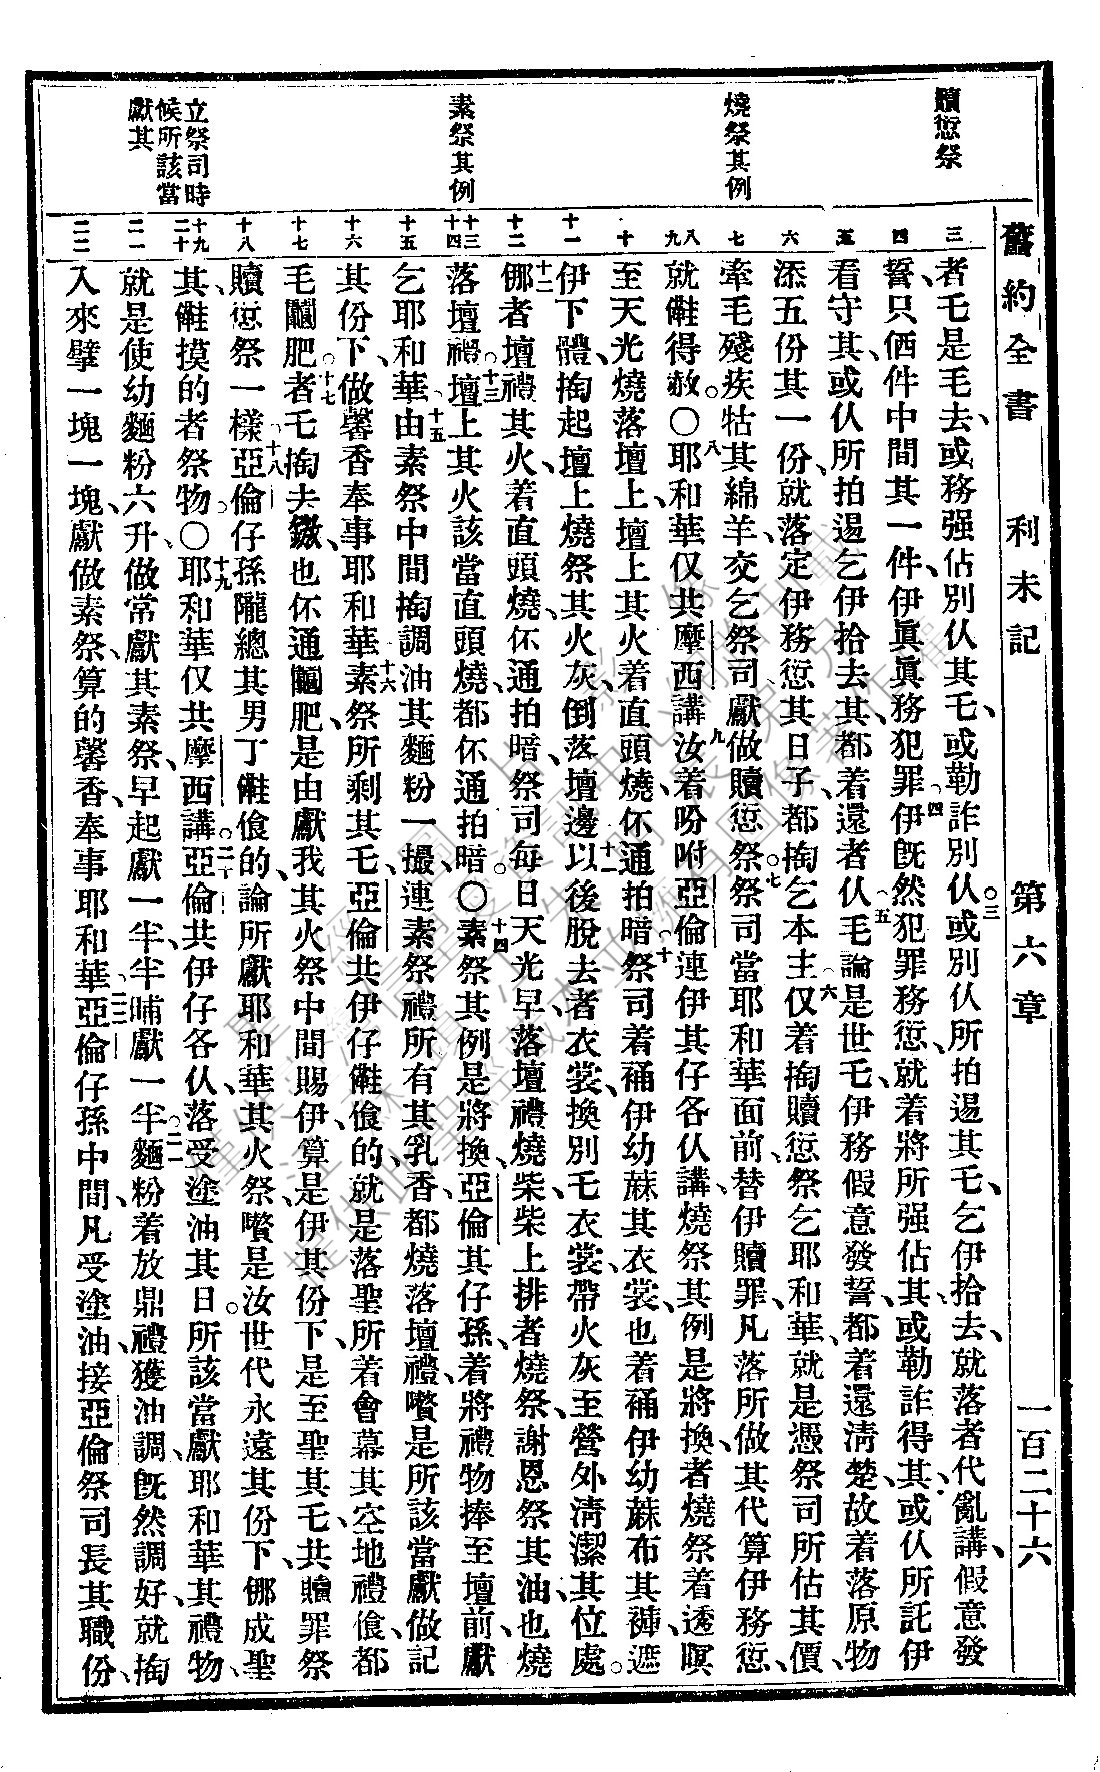 舊約全書 利未記 第六章 一百二十六
贖愆祭
燒祭其例
素祭其例
立祭司時
候所該當
獻其
三
四
五
六
七
八
九
十
十一
十二
十三
十四
十五
十六
十七
十八
十九
二十
二一
二二
者乇是乇去、或務强佔別伩其乇、或勒詐別伩、或別伩所拍逷其乇、乞伊拾去、就落者代亂講、假意發
誓、只㑚件中間其一件、伊眞眞務犯罪伊旣然犯罪務愆、就着將所强佔其、或勒詐得其、或伩所託伊
看守其、或伩所拍逷乞伊拾去其、都着還者伩乇論是世乇、伊務假意發誓、都着還淸楚、故着落原物
添五份其一份、就落定伊務愆其日子、都掏乞本主仅着掏贖愆祭乞耶和華、就是憑祭司所估其價、
牽乇殘疾牯其綿羊、交乞祭司獻做贖愆祭。祭司當耶和華面前、替伊贖罪、凡落所做其代算伊務愆、
就㒕得赦。〇耶和華仅共摩西講、汝着吩咐亞倫連伊其仔各伩講、燒祭其例是將換、者燒祭着透暝
至天光燒落壇上、壇上其火着直頭燒、伓通拍暗、祭司着䄻伊幼蔴其衣裳、也着䄻伊幼蔴布其褲、遮
伊下體、掏起壇上燒祭其火灰、倒落壇邊、以後脫去者衣裳、換別乇衣裳、帶火灰至營外淸潔其位處。
㑚者壇禮其火、着直頭燒、伓通拍暗、祭司每日天光早、落壇禮燒柴、柴上排者燒祭、謝恩祭其油、也燒
落壇禮。壇上其火該當直頭燒、都伓通拍暗。〇素祭其例、是將換、亞倫其仔孫、着將禮物捧至壇前、獻
乞耶和華、由素祭中間掏調油其麵粉一撮、連素祭禮所有其乳香、都燒落壇禮、嚽是所該當獻做記
其份下、做馨香奉事耶和華素祭所剩其乇、亞倫共伊仔㒕偹的、就是落聖所着會幕其空地禮偹、都
乇䤅肥者乇掏去、鏾也伓通䤅肥、是由獻我其火祭中間賜伊、算是伊其份下、是至聖其乇、共贖罪祭
贖愆祭一樣亞倫仔孫隴總其男丁㒕偹的、論所獻耶和華其火祭、嚽是汝世代永遠其份下、㑚成聖
其、㒕摸的者祭物。〇耶和華仅共摩西講。亞倫共伊仔各伩、落受塗油其日。所該當獻耶和華其禮物、
就是使幼麵粉六升、做常獻其素祭、早起獻一半、半晡獻一半麵粉着放鼎禮、獲油調、旣然調好、就掏
入來、擘一塊一塊、獻做素祭、算的馨香、奉事耶和華亞倫仔孫中間、凡受塗油、接亞倫祭司長其職份、